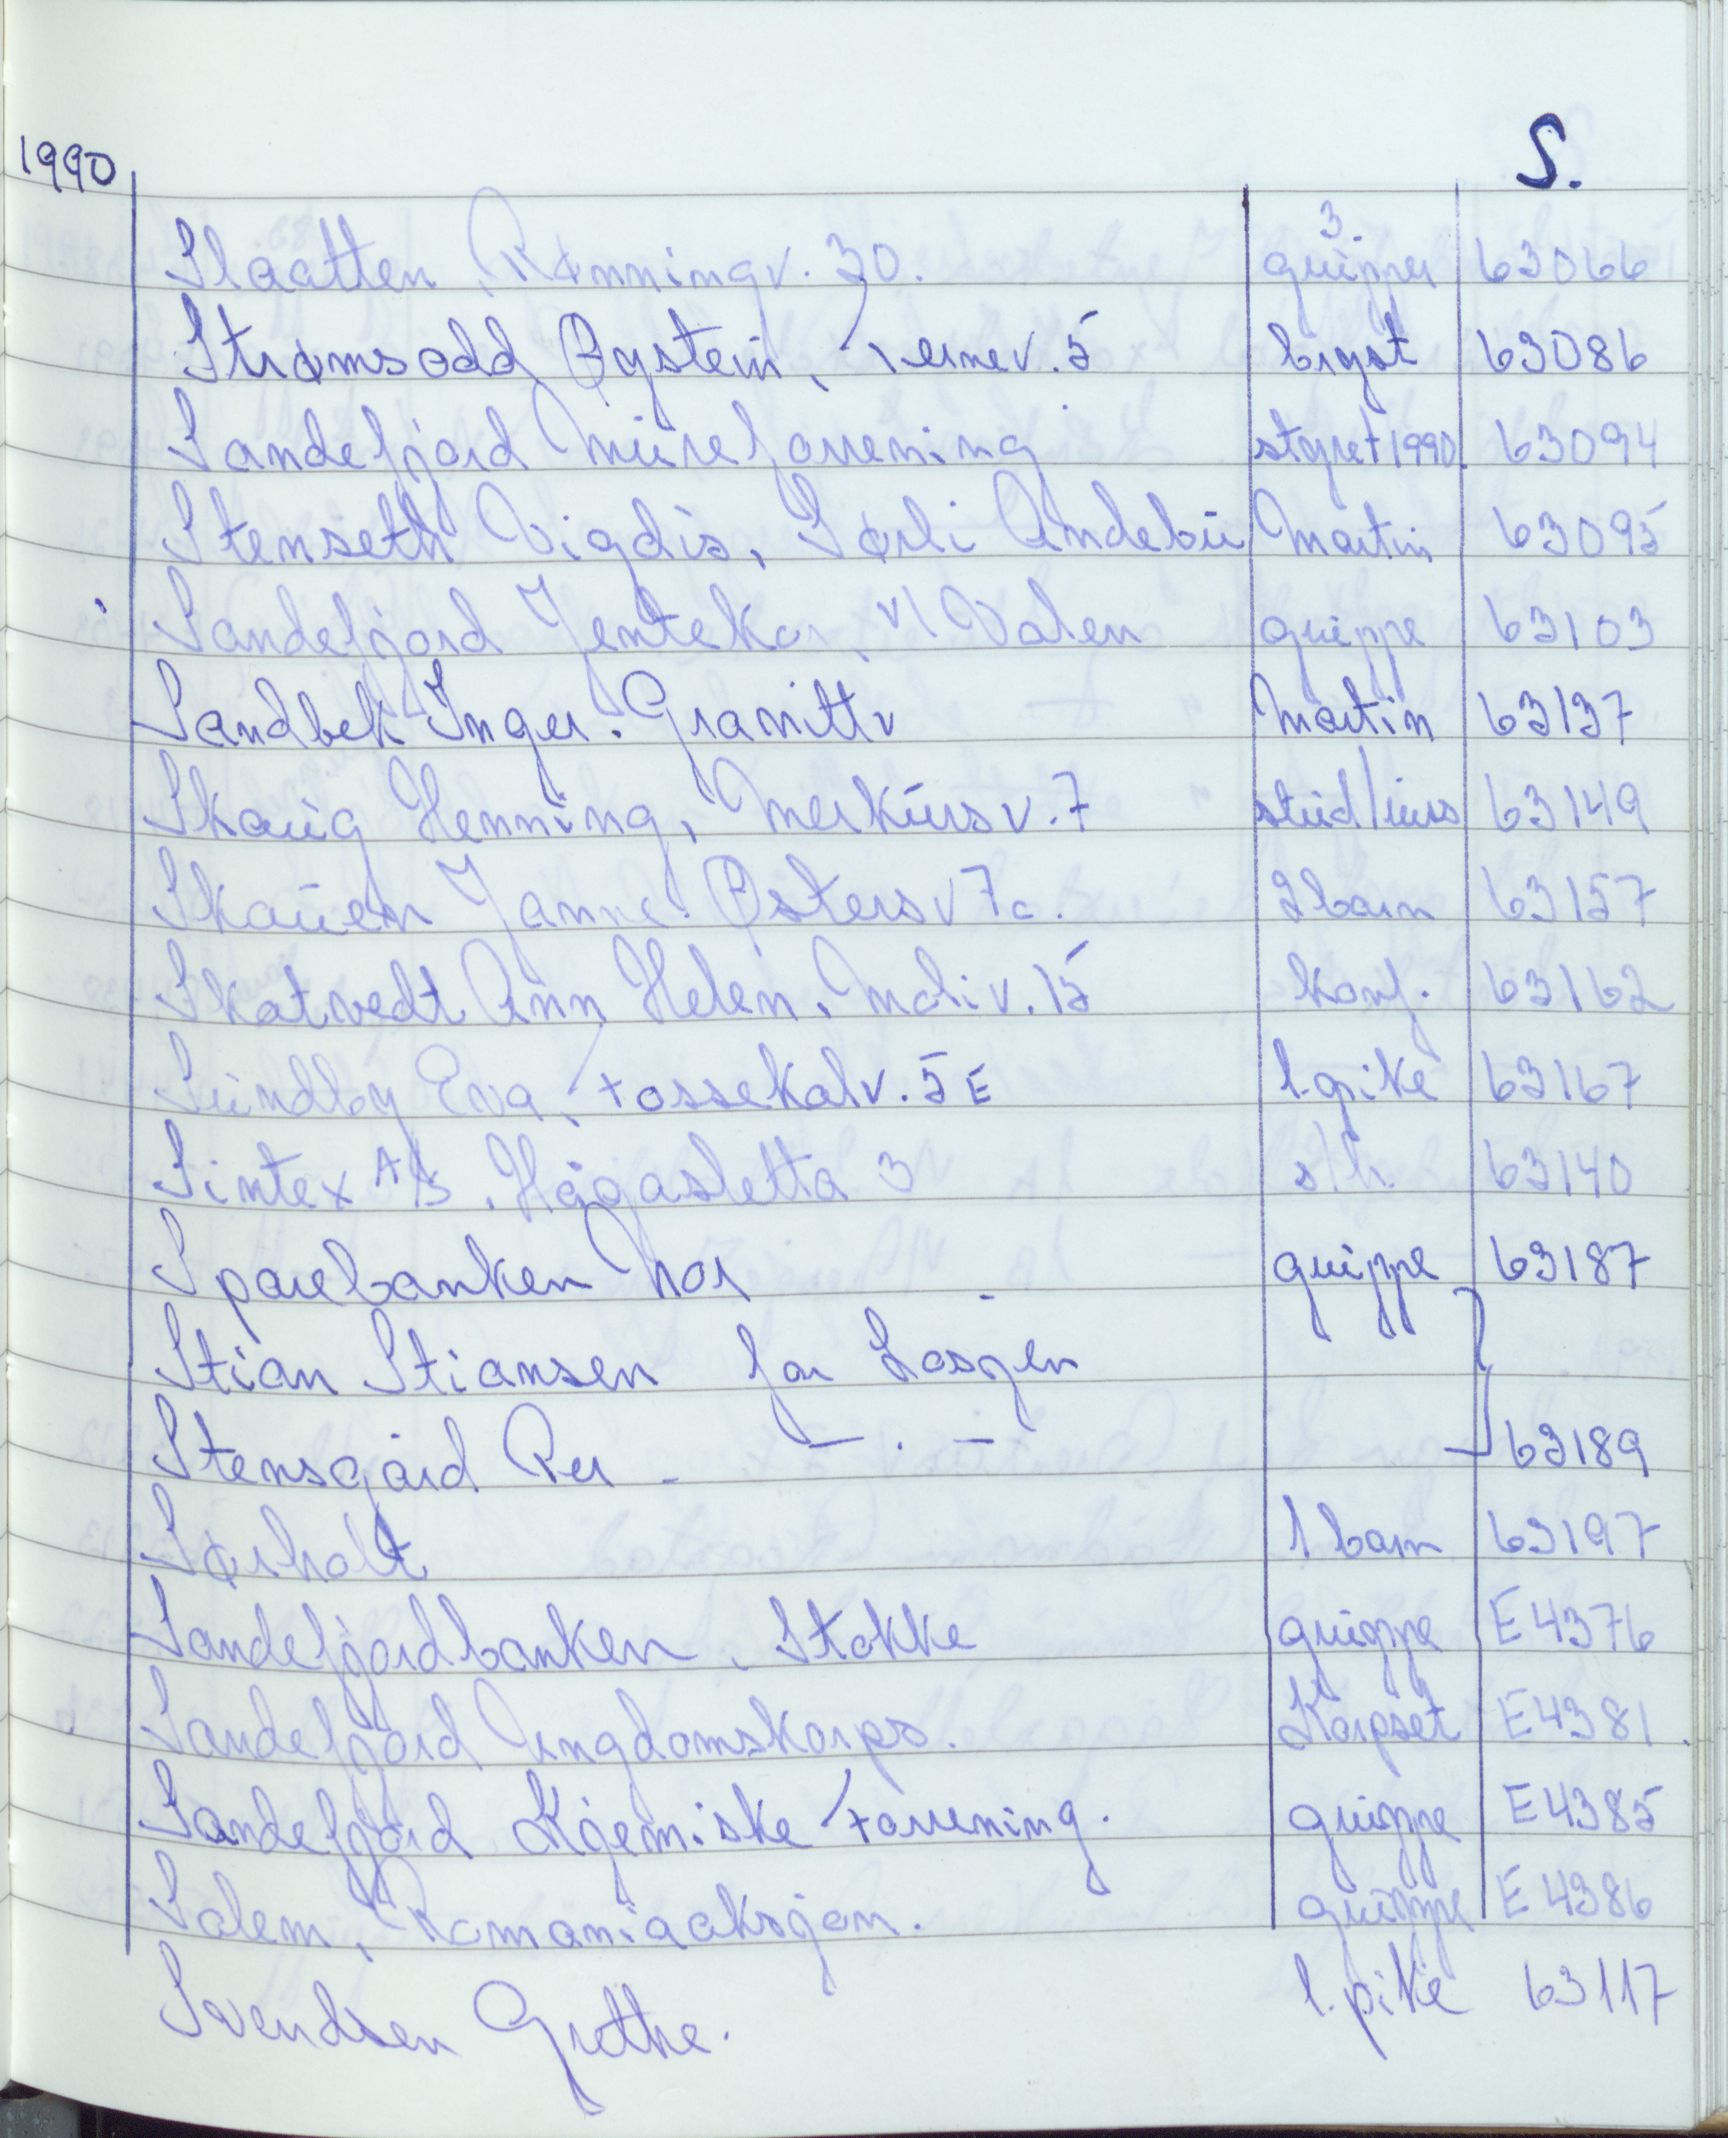 1990 S.
Slaatten, Rønningv. 30. 3. grupper 63066
Strømsodd Øystein, Fernev. 5 bryst 63086
Sandefjord Murerforening styret 1990. 63094
Stenseth Vigdis, Sørli Andebu Martin 63095
Sandefjord Jentekor, v/ Valen gruppe 63103
Sandbek Inger. Granittv Martin 63137
Skaug Henning, Merkursv. 7 stud/urs 63149
Skauen Janne Østersv 7c. 2 barn 63157
Skatvedt Ann Helen, 15 konf. 63162
Sundby Eva, Fossekalv. 5 E l.pike 63167
Sintex A/S, Hågasletta 3 s/h. 63140
Sparebanken Nor gruppe 63187
Stian Stiansen for Losjen
Stensgård Per - — . — 63189
Sørholt 1 barn 63197
Sandefjordbanken, Stokke gruppe E 4376
Sandefjord Ungdomskorps. Korpset E 4381.
Sandefjord Kjemiske Forening. gruppe E 4385
Salem, Romaniaaksjon. gruppe E 4386
Svendsen Grethe. l.pike 63117